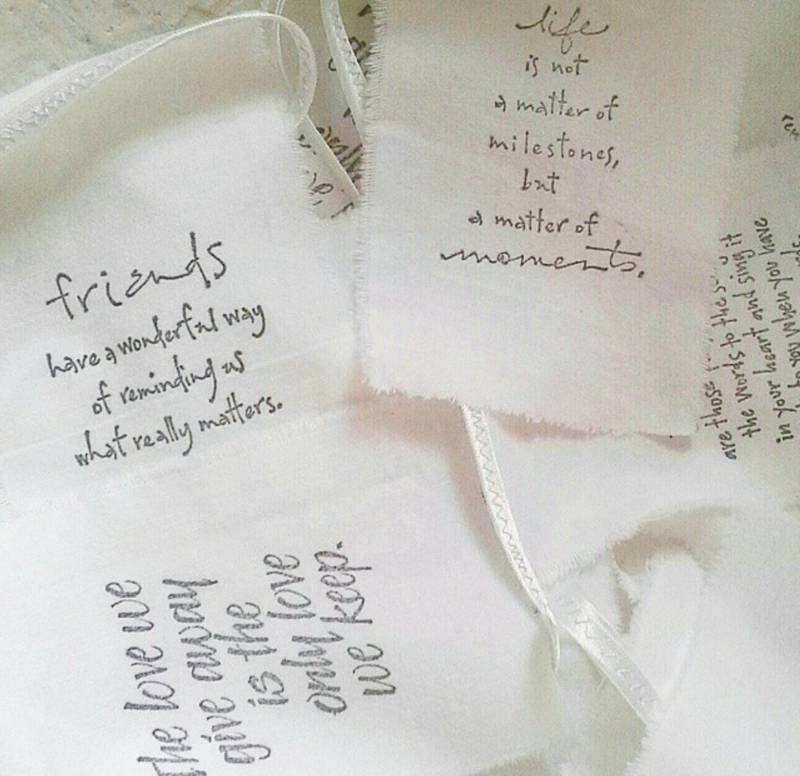 life
is not
a matter of
milestones,
but
a matter of
moments.
friends
have a wonderful way
of reminding us
what really matters.
The love we
give away
is the
only love
we keep.
are those
the words to the
in your heart and sing it
to you when you have